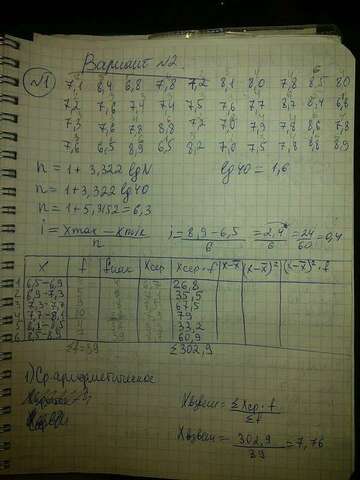 Вариант №2
№1
7,1 8,4 6,8 7,8 7,2 8,1 8,0 7,8 8,5 8,0
7,2 7,6 7,4 7,4 7,5 7,6 7,7 8,7 8,4 6,8
7,3 7,6 7,8 8,8 7,2 7,0 7,9 7,8 8,6 7,8
7,6 6,5 8,9 6,5 8,2 7,0 7,5 7,8 8,8 8,9
n = 1 + 3,322 lg N lg 40 = 1,6
n = 1 + 3,322 lg 40
n = 1 + 5,3152 = 6,3
i = Xmax - Xmin / n i = 8,9 - 6,5 / 6 = 2,4 / 6 = 24 / 60 = 0,4
x f fнак Xср Xср·f x-x̄ (x-x̄)² (x-x̄)²·f
1 6,5-6,9 26,8
2 6,9-7,3 35,5
3 7,3-7,7 67,5
4 7,7-8,1 10 79
5 8,1-8,5 33,2
6 8,5-8,9 60,9
Σf=39 Σ302,9
1) Ср. арифметическое
Xвзвеш = ΣXср·f / Σf
Xвзвеш = 302,9 / 39 = 7,76